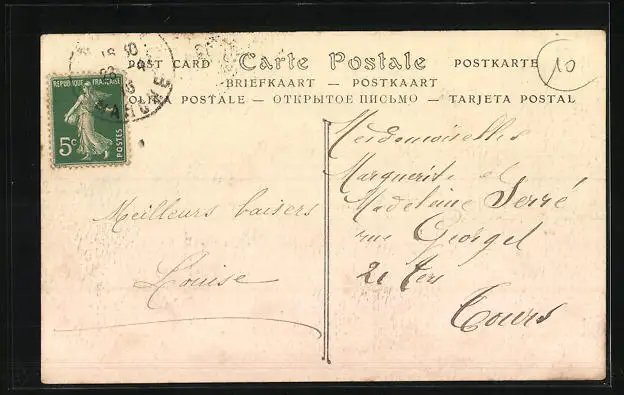 POST CARD Carte Postale POSTKARTE
BRIEFKAART — POSTKAART
POSTALE — ОТКРЫТОЕ ПИСЬМО — TARJETA POSTAL
10
REPUBLIQUE FRANÇAISE
5c
POSTES
MARCHE
Meilleurs baisers
Louise
Mesdemoiselles
Marguerite et
Madeleine Serré
rue Georget
Tours